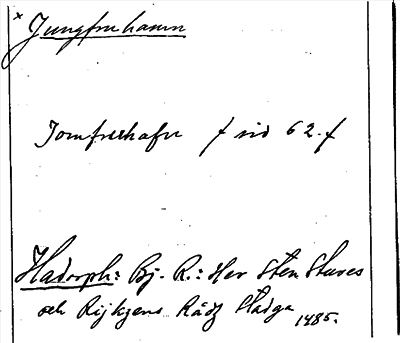 × Jungfruhamn
Jomfrwhafn f sid 62. f
Hadorph: Bj. R.: Her Sten Stures
och Rijkzens Rådz Stadga 1485.